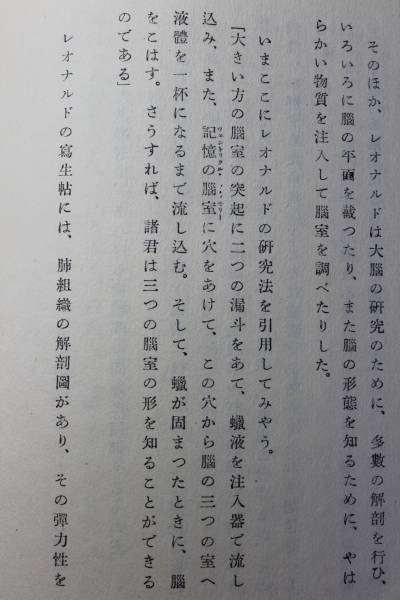 そのほか、レオナルドは大腦の研究のために、多數の解剖を行ひ、
いろいろに腦の平面を截つたり、また腦の形態を知るために、やは
らかい物質を注入して腦室を調べたりした。
いまここにレオナルドの研究法を引用してみやう。
「大きい方の腦室の突起に二つの漏斗をあて、蠟液を注入器で流し
込み、また、記憶の腦室に穴をあけて、この穴から腦の三つの室へ
液體を一杯になるまで流し込む。そして、蠟が固まつたときに、腦
をこはす。さうすれば、諸君は三つの腦室の形を知ることができる
のである」
レオナルドの寫生帖には、肺組織の解剖圖があり、その彈力性を